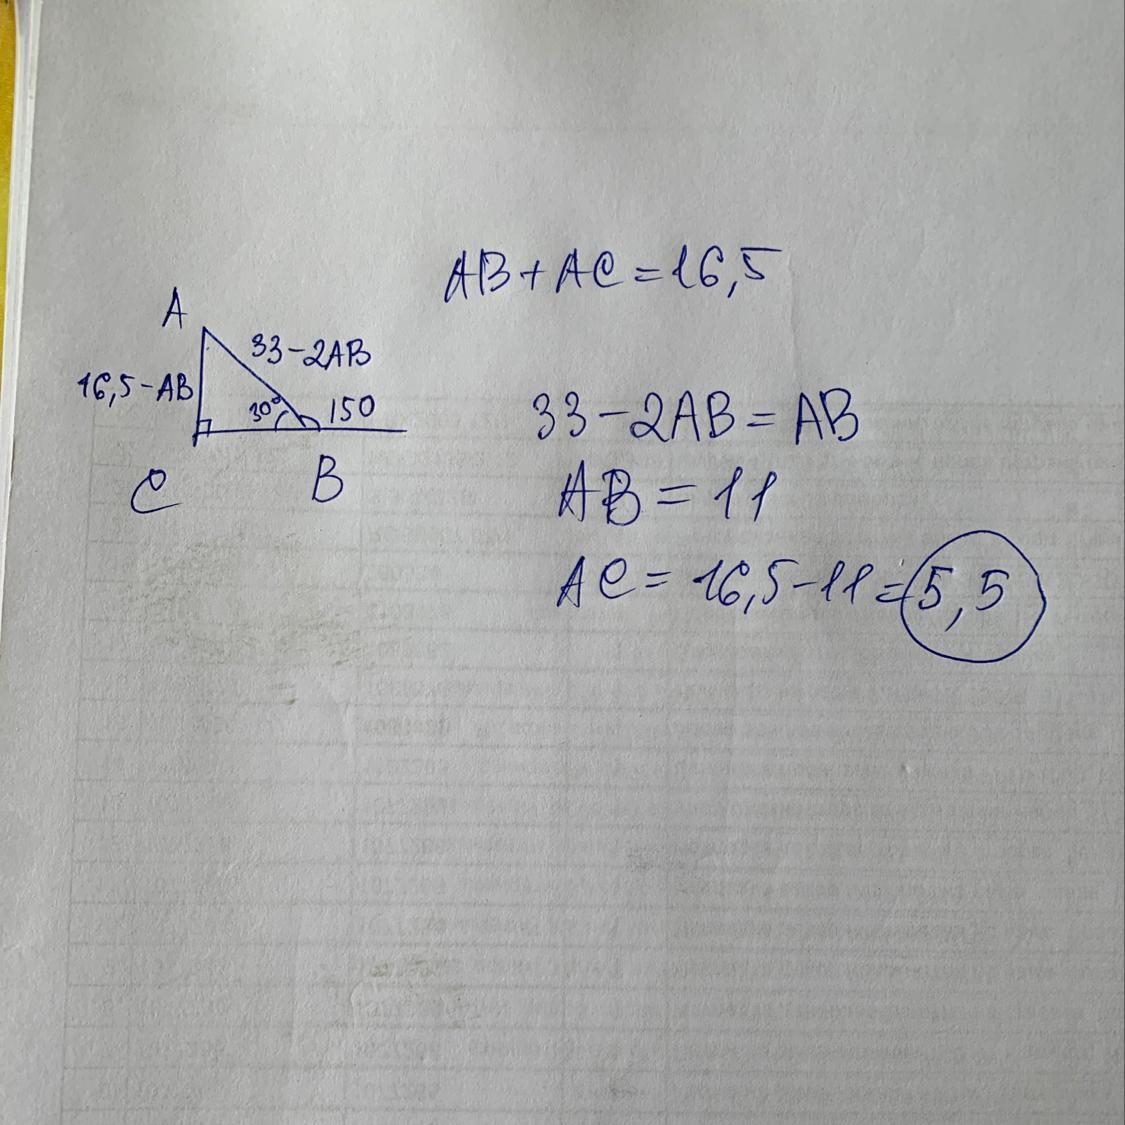 AB + AC = 16,5
A
33 - 2AB
16,5 - AB
30°
150
C
B
33 - 2AB = AB
AB = 11
AC = 16,5 - 11 = 5,5